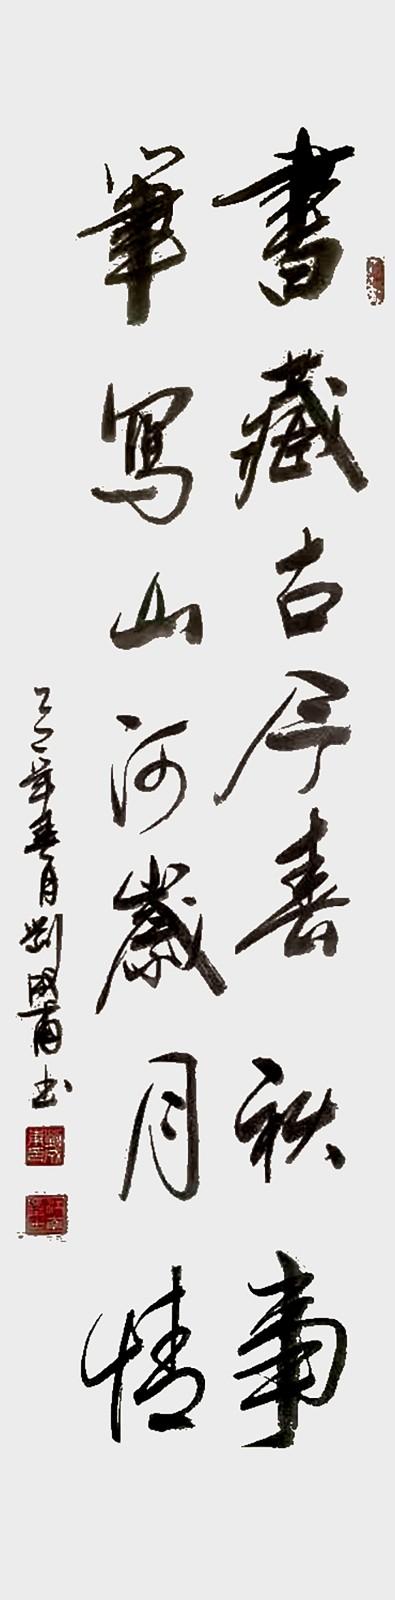 書藏古今春秋事
筆寫山河歲月情
乙巳年春月劉國甫书